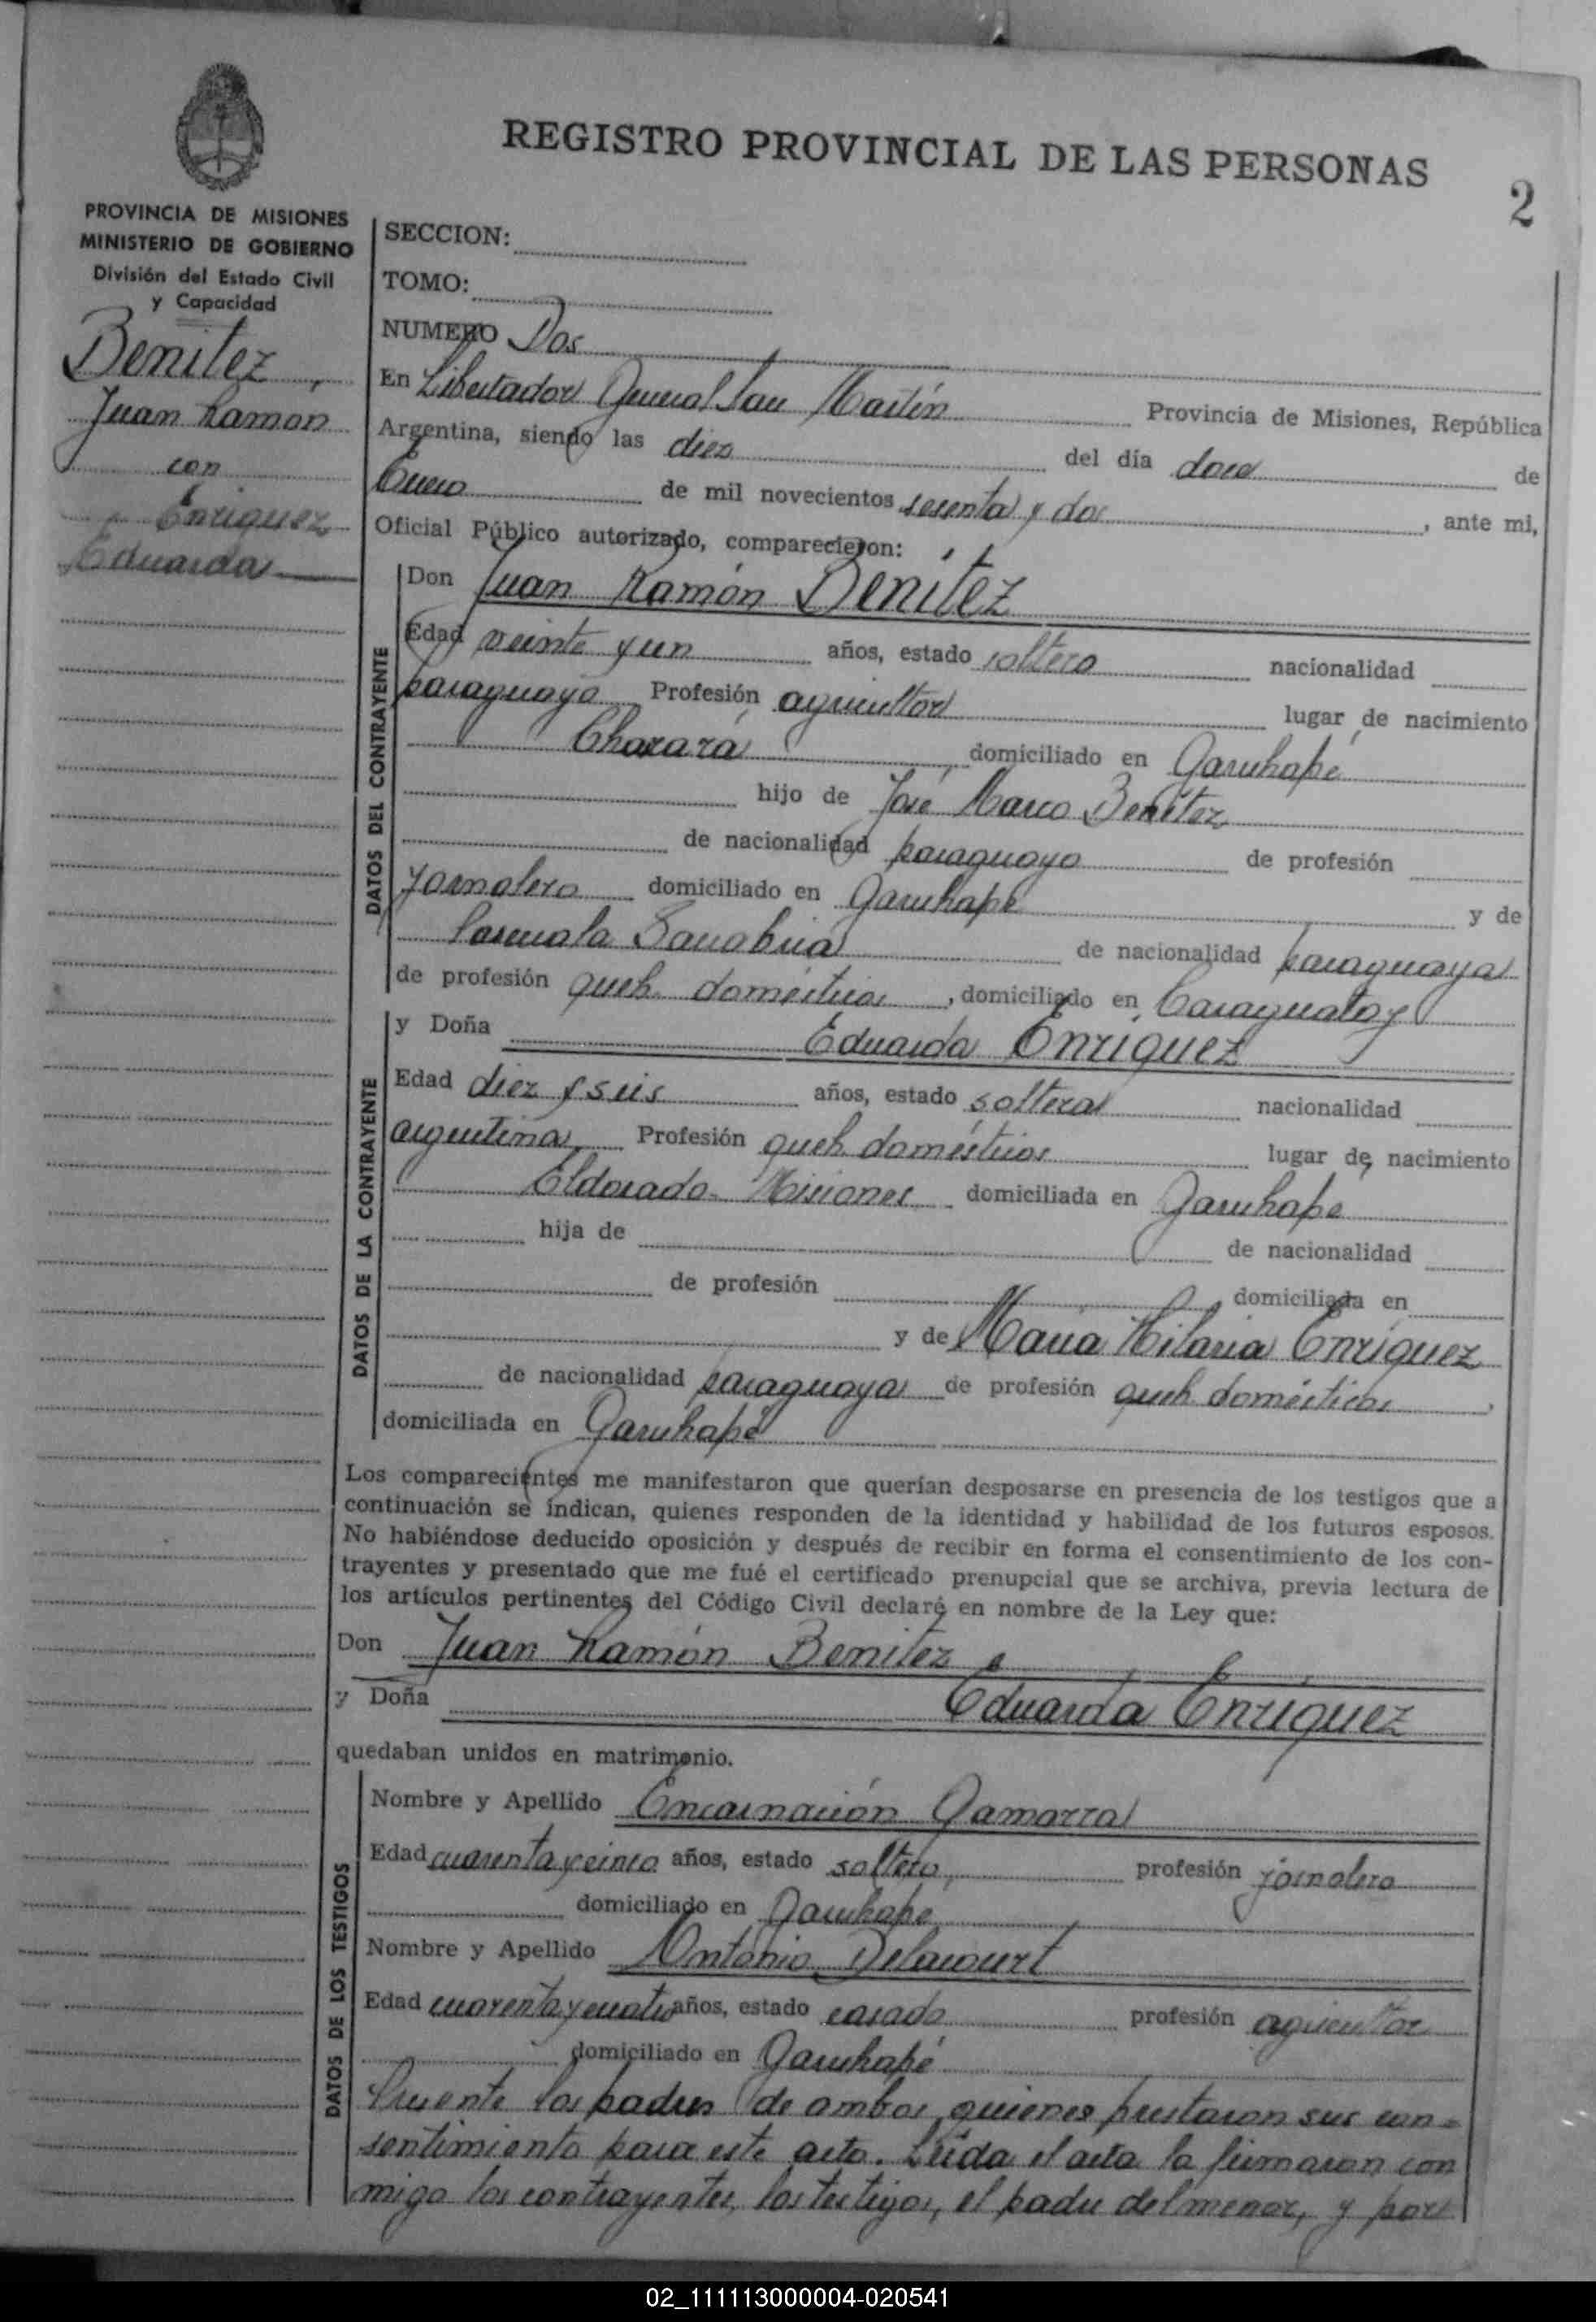 REGISTRO PROVINCIAL DE LAS PERSONAS
2
PROVINCIA DE MISIONES
MINISTERIO DE GOBIERNO
División del Estado Civil
y Capacidad
Benitez,
Juan Ramón
con
Enriquez
Eduarda
SECCION:
TOMO:
NUMERO Dos
En Libertador General San Martín Provincia de Misiones, República
Argentina, siendo las diez del día doce de
Enero de mil novecientos sesenta y dos, ante mi,
Oficial Público autorizado, comparecieron:
DATOS DEL CONTRAYENTE
Don Juan Ramón Benítez
Edad veinte y un años, estado soltero nacionalidad
paraguaya Profesión agricultor lugar de nacimiento
Chorará domiciliado en Garuhapé
hijo de José Marco Benítez
de nacionalidad paraguayo de profesión
jornalero domiciliado en Garuhapé y de
Pascuala Sanabria de nacionalidad paraguaya
de profesión queh. domésticos, domiciliado en Caraguatay
DATOS DE LA CONTRAYENTE
y Doña Eduarda Enríquez
Edad diez y seis años, estado soltera nacionalidad
argentina Profesión queh domésticos lugar de nacimiento
Eldorado - Misiones domiciliada en Garuhapé
hija de de nacionalidad
de profesión domiciliada en
y de María Hilaria Enríquez
de nacionalidad paraguaya de profesión queh domésticos,
domiciliada en Garuhapé
Los comparecientes me manifestaron que querían desposarse en presencia de los testigos que a
continuación se indican, quienes responden de la identidad y habilidad de los futuros esposos.
No habiéndose deducido oposición y después de recibir en forma el consentimiento de los con-
trayentes y presentado que me fué el certificado prenupcial que se archiva, previa lectura de
los artículos pertinentes del Código Civil declaré en nombre de la Ley que:
Don Juan Ramón Benitez
y Doña Eduarda Enríquez
quedaban unidos en matrimonio.
DATOS DE LOS TESTIGOS
Nombre y Apellido Encarnación Gamarra
Edad cuarenta y cinco años, estado soltero, profesión jornalero
domiciliado en Garuhapé
Nombre y Apellido Antonio Delacourt
Edad cuarenta y cuatro años, estado casado profesión agricultor
domiciliado en Garuhapé
Presente los padres de ambos, quienes prestaron sus con=
sentimiento para este acto. Leída el acta la firmaron con
migo los contrayentes, los testigos, el padre del menor, y por
02_111113000004-020541